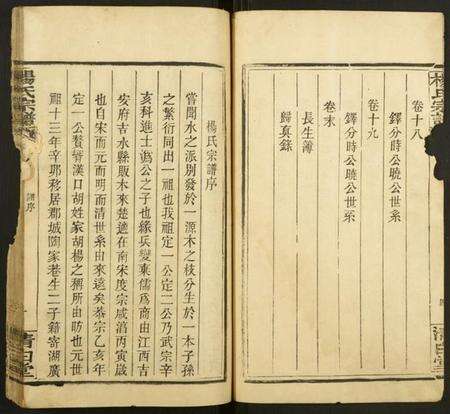 楊氏宗譜
卷十八
鐸分時公曉公世系
卷十九
鐸分時公曉公世系
卷末
長生簿
歸真錄
清白堂
楊氏宗譜序
嘗聞水之派別發於一源木之枝分生於一本子孫
之繁衍同出一祖也我祖定一公定二公乃武宗辛
亥科進士公之子也緣兵變棄儒爲商由江西吉
安府吉水縣販木來楚適在南宋度宗咸淳丙寅歲
也自宋而元而明而清世系由來遠矣恭宗乙亥年
定一公贅漢口胡姓家胡楊之稱所由昉也元世
祖十三年辛卯移居郡城陶家巷生二子籍寄湖廣
楊氏宗譜
譜序
清白堂